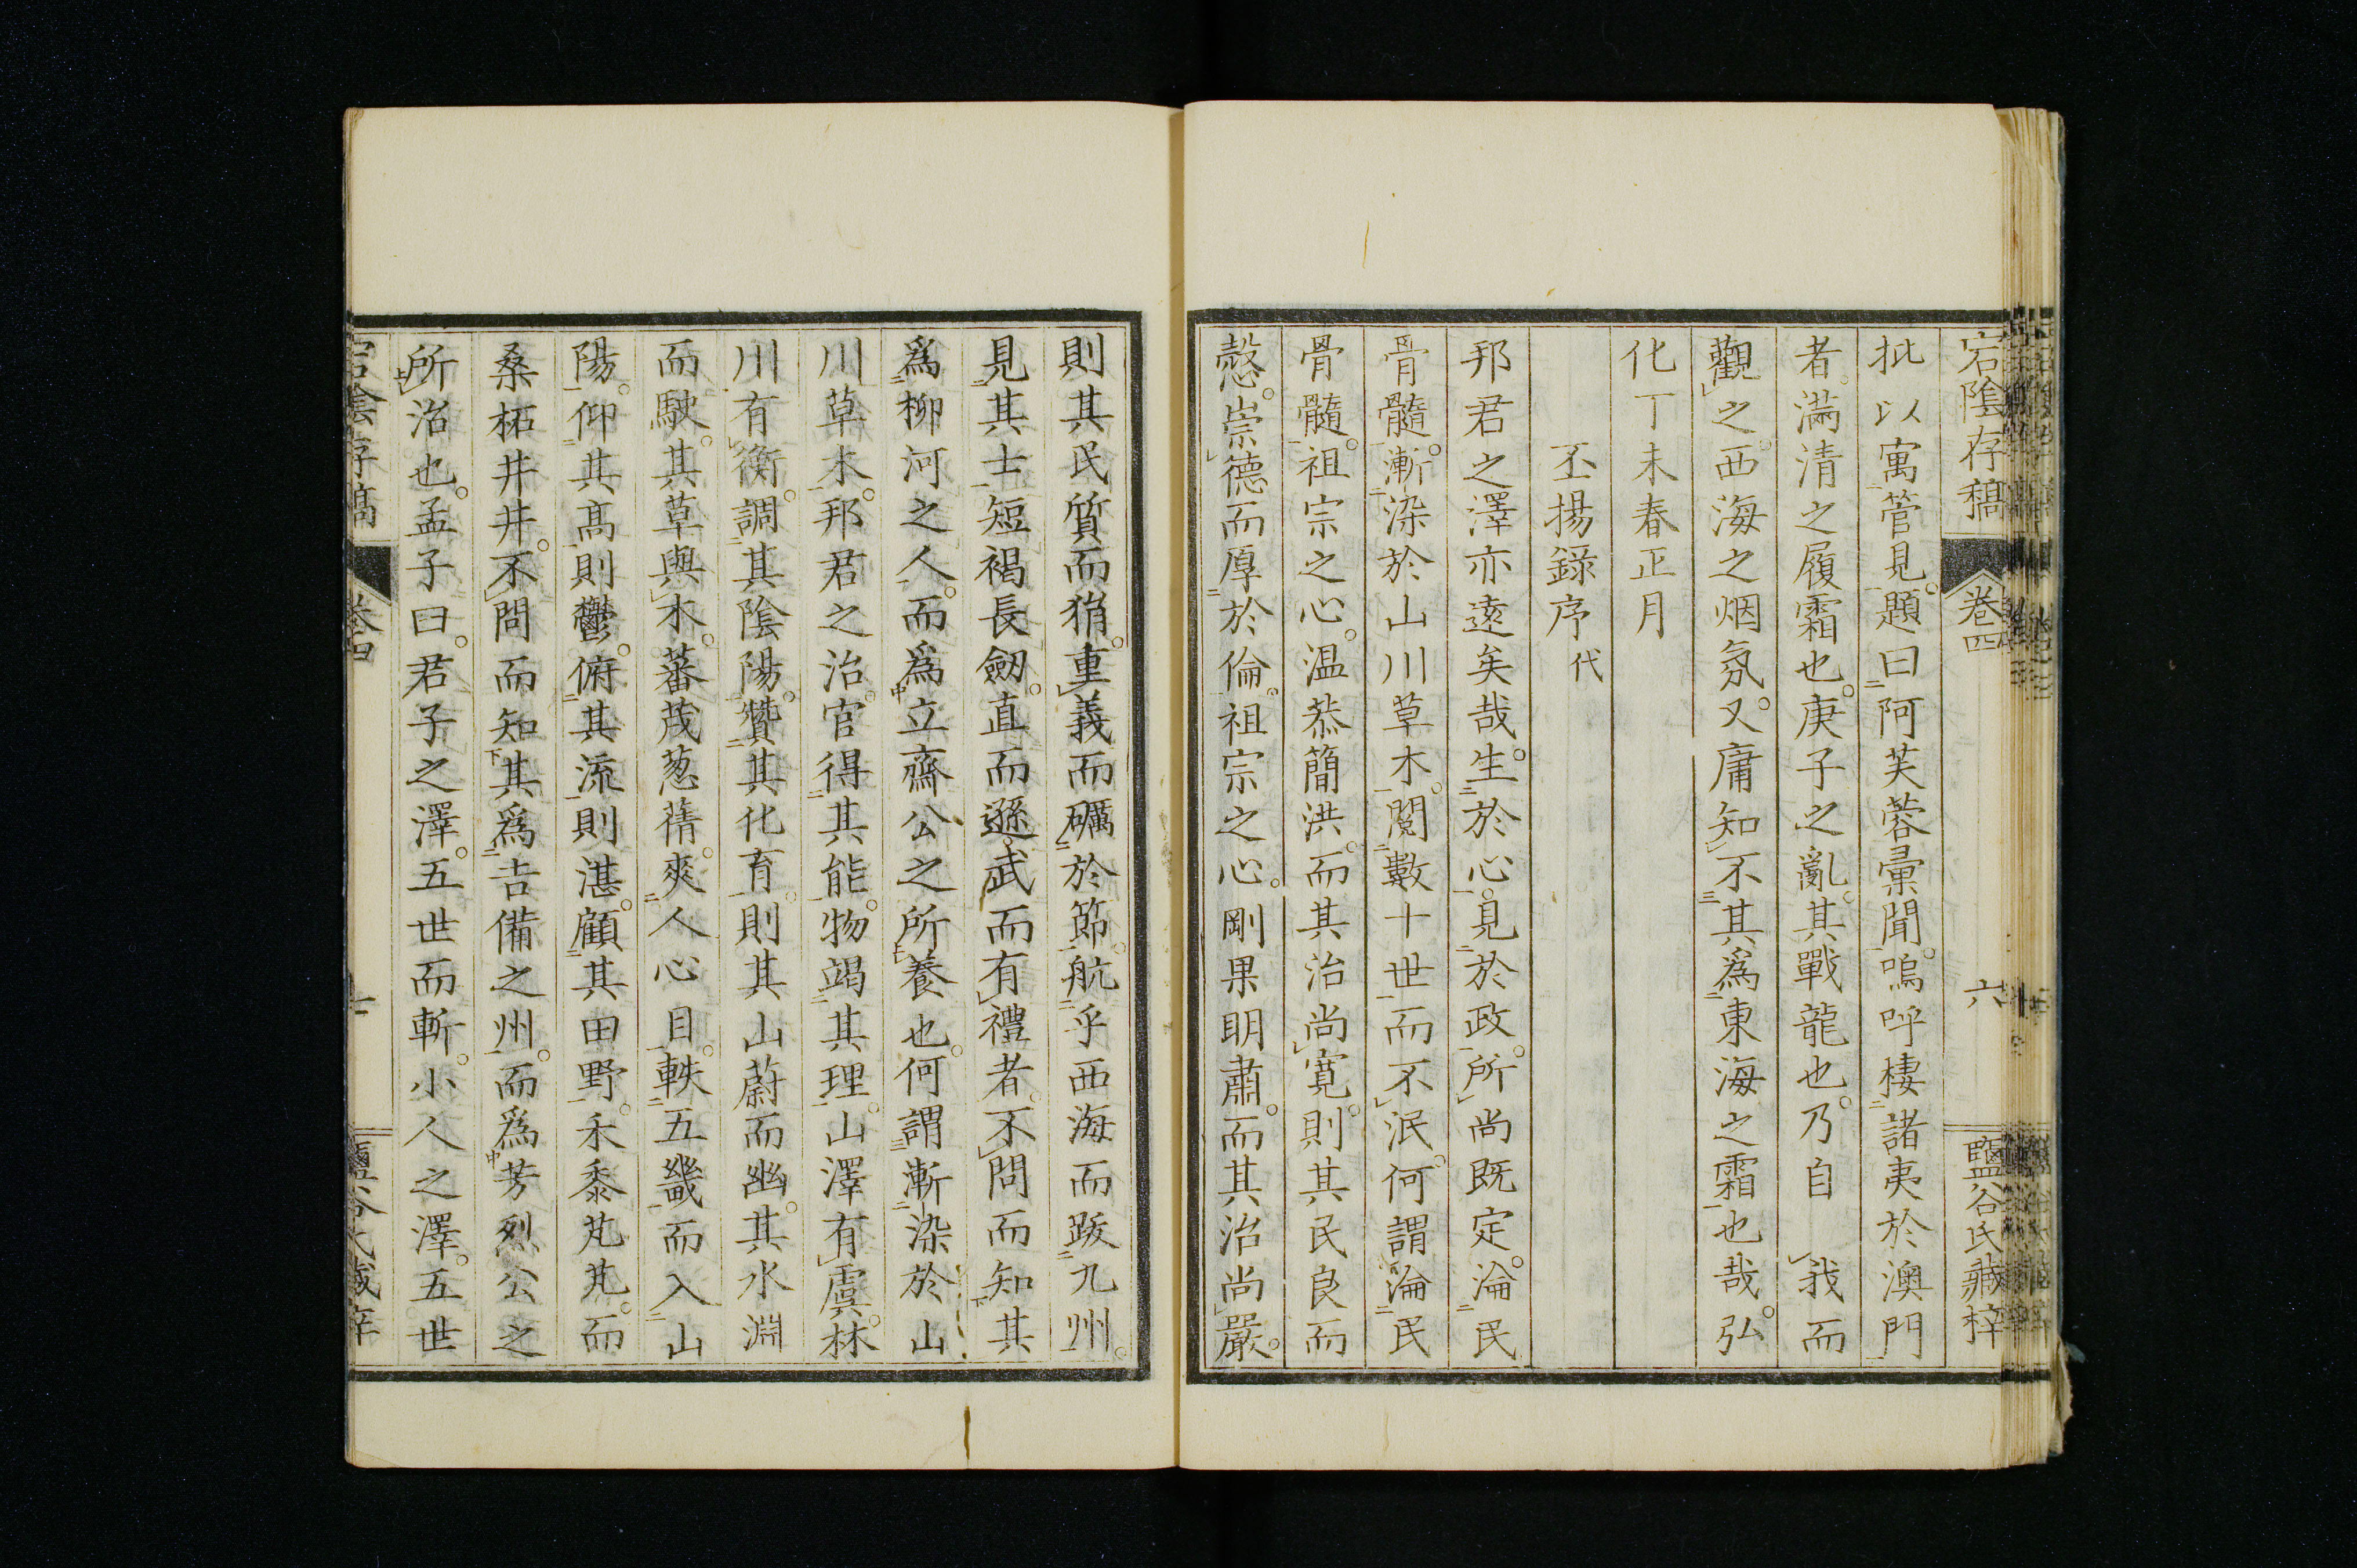 宕陰存稿 卷四 六 鹽谷氏藏梓
批以寓管見。題曰阿芙蓉彙聞。嗚呼棲諸夷於澳門
者。滿清之履霜也。庚子之亂。其戰龍也。乃自 我而
觀之。西海之烟氛。又庸知不其爲東海之霜也哉。弘
化丁未春正月
丕揚錄序代
邦君之澤亦遠矣哉。生於心。見於政。所尚既定。淪民
骨髓。漸染於山川草木。閱數十世而不泯。何謂淪民
骨髓。祖宗之心。温恭簡洪。而其治尚寛。則其民良而
愨。崇德而厚於倫。祖宗之心。剛果明肅。而其治尚嚴。
則其民質而狷。重義而礪於節。航乎西海而跋九州。
見其士短褐長劒。直而遜。武而有禮者。不問而知其
爲柳河之人。而爲立齋公之所養也。何謂漸染於山
川草木。邦君之治。官得其能。物竭其理。山澤有虞。林
川有衡。調其陰陽。贊其化育。則其山蔚而幽。其水淵
而駛。其草與木。蕃茂葱蒨。爽人心目。軼五畿而入山
陽。仰其高則鬱。俯其流則湛。顧其田野。禾黍芃芃。而
桑柘井井。不問而知其爲吉備之州。而爲芳烈公之
所治也。孟子曰。君子之澤。五世而斬。小人之澤。五世
宕陰存稿 卷四 七 鹽谷氏藏梓